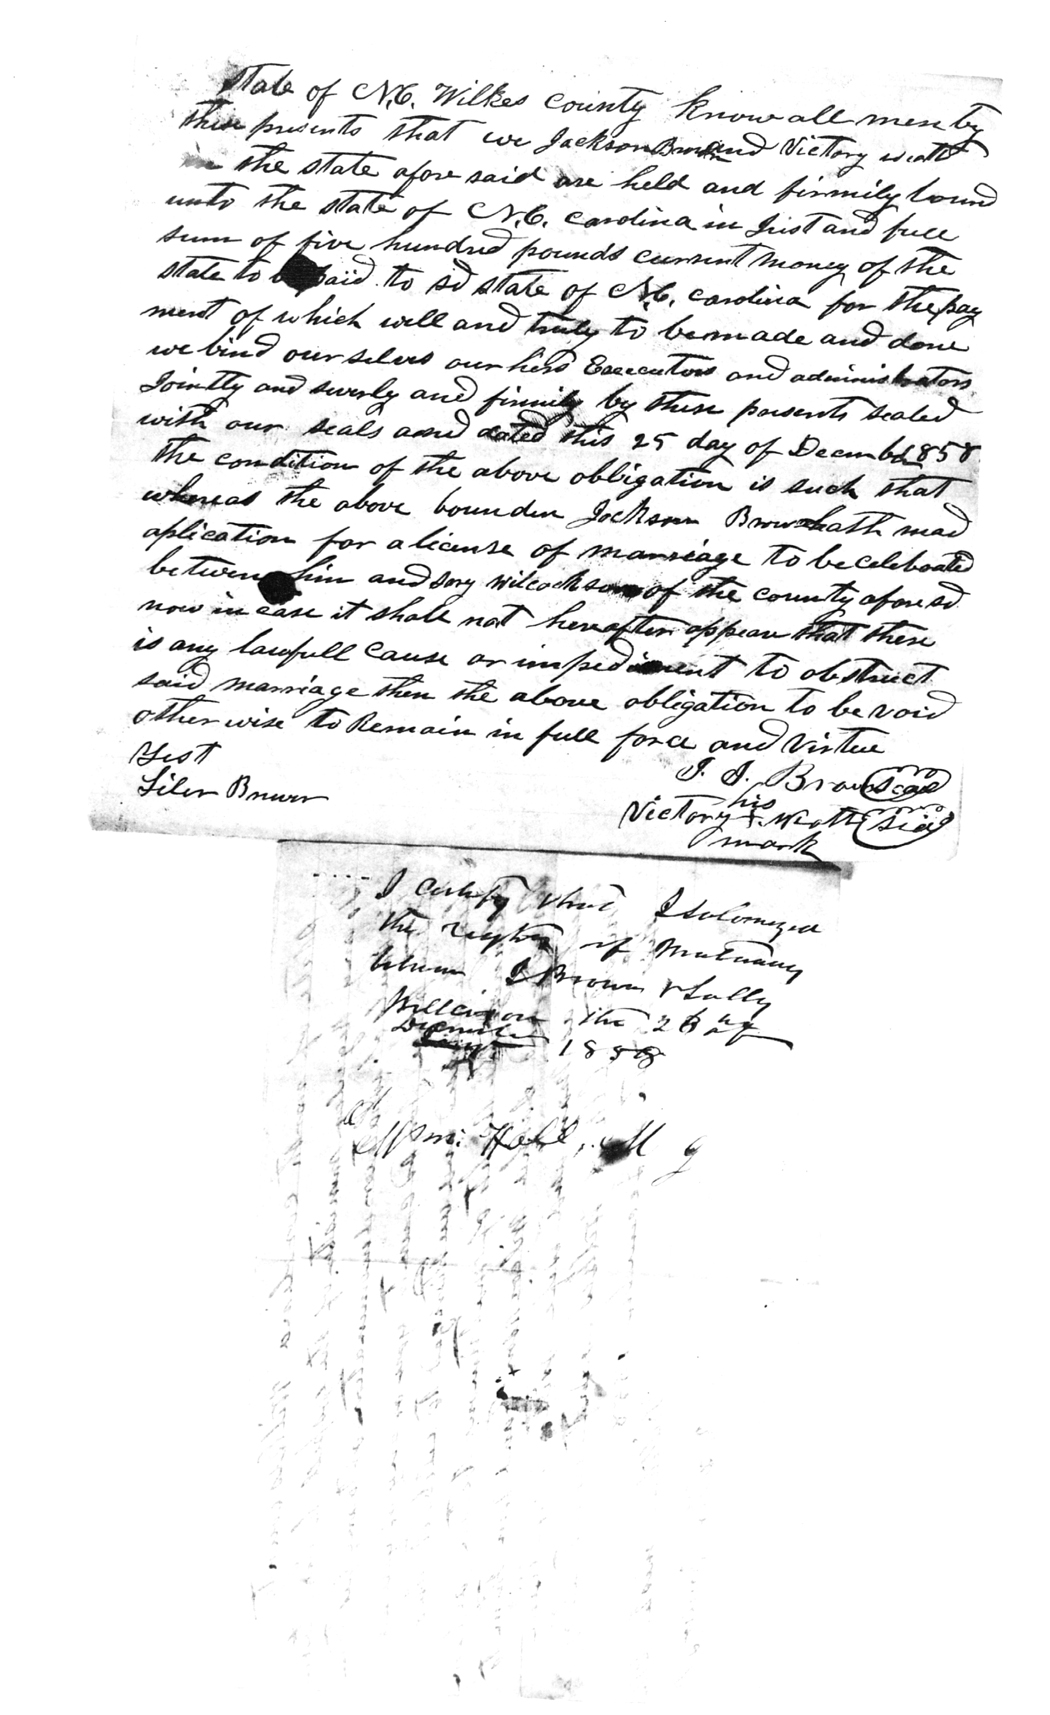 State of N.C. Wilkes County Know all men by
these presents that we Jackson Brown and Victory Wiatt
in the state afore said are held and firmily bound
unto the state of N.C. carolina in Just and full
sum of five hundred pounds current money of the
state to be paid to sd state of N.C. carolina for the pay
ment of which will and truly to be made and done
we bind our selves our heirs Executors and administrators
Jointly and sevrly and firmily by these presents sealed
with our seals and dated this 25 day of Decembr 1858
the condition of the above obligation is such that
whereas the above bounden Jackson Brown hath mad
aplication for a license of marriage to be celebrated
between him and Wilcockson of the county afore sd
now in case it shall not hereafter appear that there
is any lawfull cause or impediment to obstruct
said marriage then the above obligation to be void
other wise to Remain in full force and virtue
Test
J. J. Brown seal
Brown
his
Victory + Wiatt seal
mark
I certify that I solomized
the of Matrimony
between J Brown & Sally
Willcixon the 28 day of
December
1858
Wm. Hall, M g